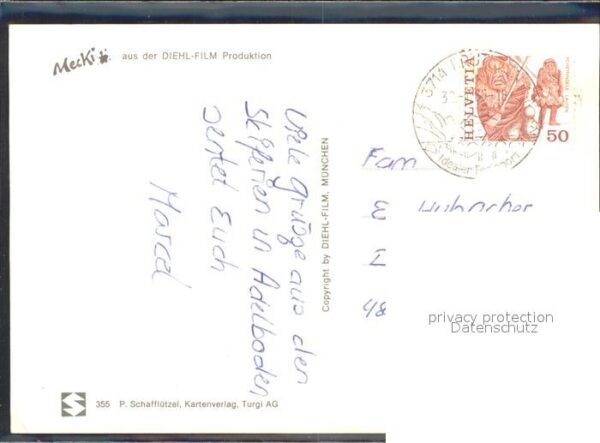 Mecki
aus der DIEHL-FILM Produktion
Viele grüsse aus den
Skiferien in Adelboden
sertet Euch
Marcel
Copyright by DIEHL-FILM, MÜNCHEN
HELVETIA
50
3714
Fam
E
I
48
privacy protection
Datenschutz
355 P. Schafflützel, Kartenverlag, Turgi AG